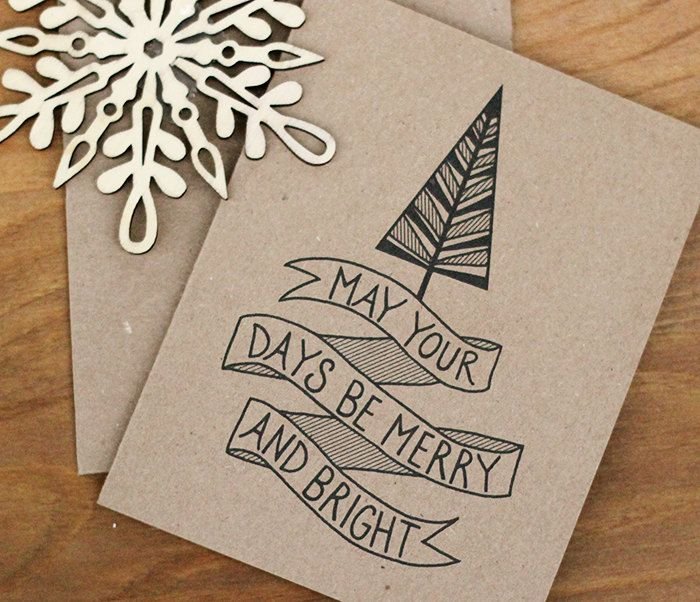 MAY YOUR
DAYS BE MERRY
AND BRIGHT